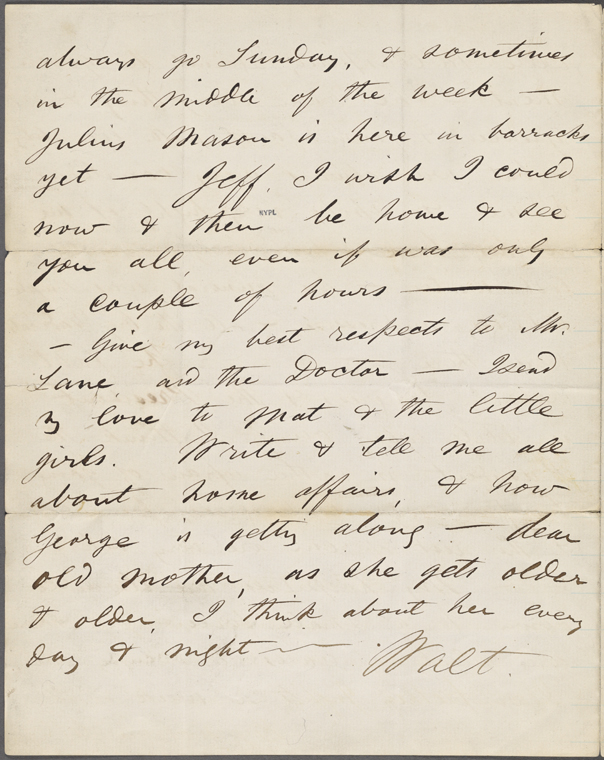 always go Sunday, & sometimes
in the middle of the week —
Julius Mason is here in barracks
yet — Jeff, I wish I could
now & then be home & see
NYPL
you all, even if was only
a couple of hours —
— Give my best respects to Mr.
Lane and the Doctor — I send
my love to Mat & the little
girls. Write & tell me all
about home affairs, & how
George is getting along — dear
old mother, as she gets older
& older, I think about her every
day & night —
Walt.